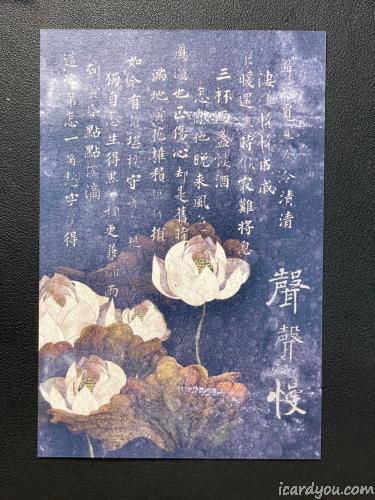 冷清清
淒 戚戚
暖還寒時 難將息
三杯兩盞淡酒
怎敵他晚來風
過也正傷心卻是舊時
滿地黃花堆積 損
如今有 堪摘守
獨自怎生得黑 桐更兼細雨
到黃昏點點滴滴
這次第怎一個愁字 得
聲聲慢
icardyou.com